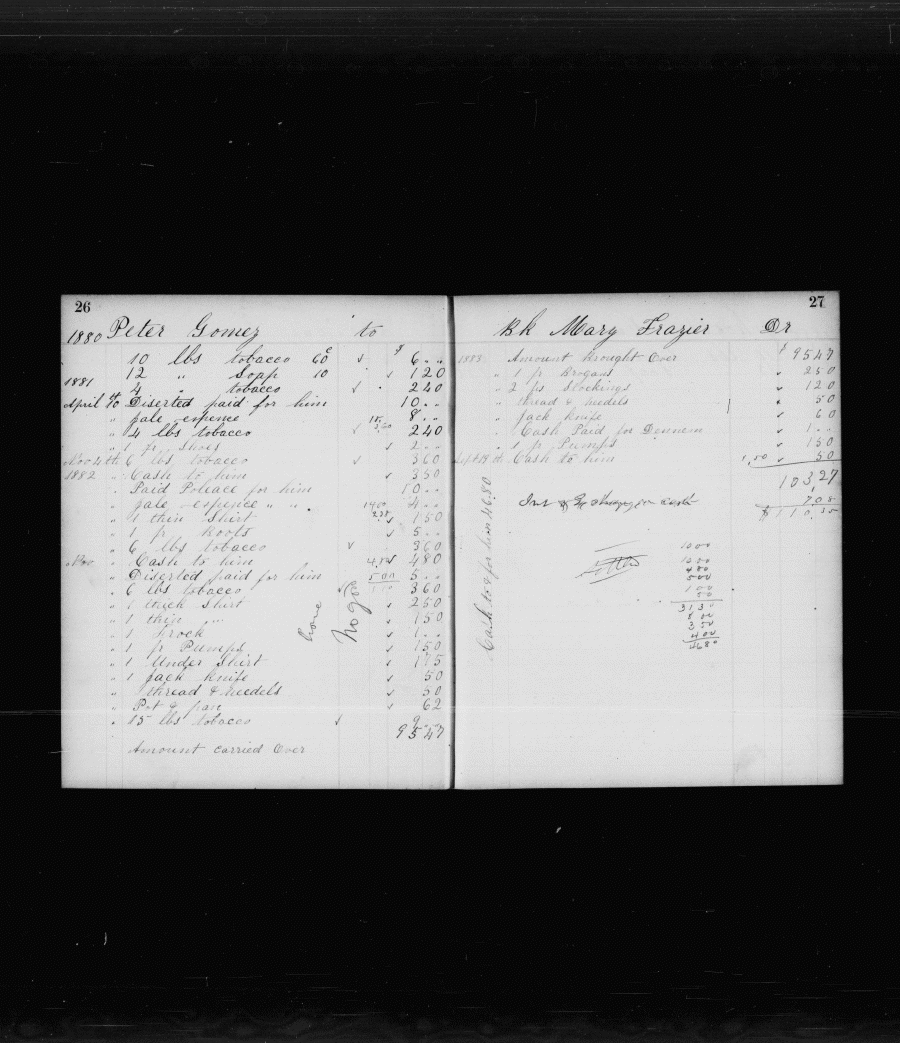 26
1880 Peter Gomez to
10 lbs tobacco 60c $ 6 "
12 " Sopp 10 120
1881
4 " tobacco 240
April 10th Diserted paid for him 10 "
" Jale expence 8 "
" 4 lbs tobacco 240
" 1 pr Shoes 2 "
Nov 4th 6 lbs tobacco 360
1882 " Cash to him 350
" Paid Poleace for him 10 "
" Jale expence " " 4 "
" 1 thin Shirt 150
" 1 pr Boots 5 "
" 6 lbs tobacco 360
Nov " Cash to him 480
" Diserted paid for him 500 5 "
" 6 lbs tobacco 360
" 1 thick Shirt 250
" 1 thin " 150
" 1 Frock 1 "
" 1 pr Pumps 150
" 1 Under Shirt 175
" 1 Jack Knife 50
" thread & needels 50
" Pot & pan 62
" 15 lbs tobacco 9 "
9547
Amount carried Over
No good
27
Bk Mary Frazier Dr
1883 Amount Brought Over $ 9547
" 1 pr Brogans 250
" 2 ps Stockings 120
" thread & nedels 50
" Jack Knife 60
" Cash Paid for 1 "
" 1 pr Pumps 150
Sept 19th Cash to him 1,50 50
103,27
708
$ 110,35
Cash to & for him 46.80
1000
1000
480
500
100
50
3130
800
350
400
4680